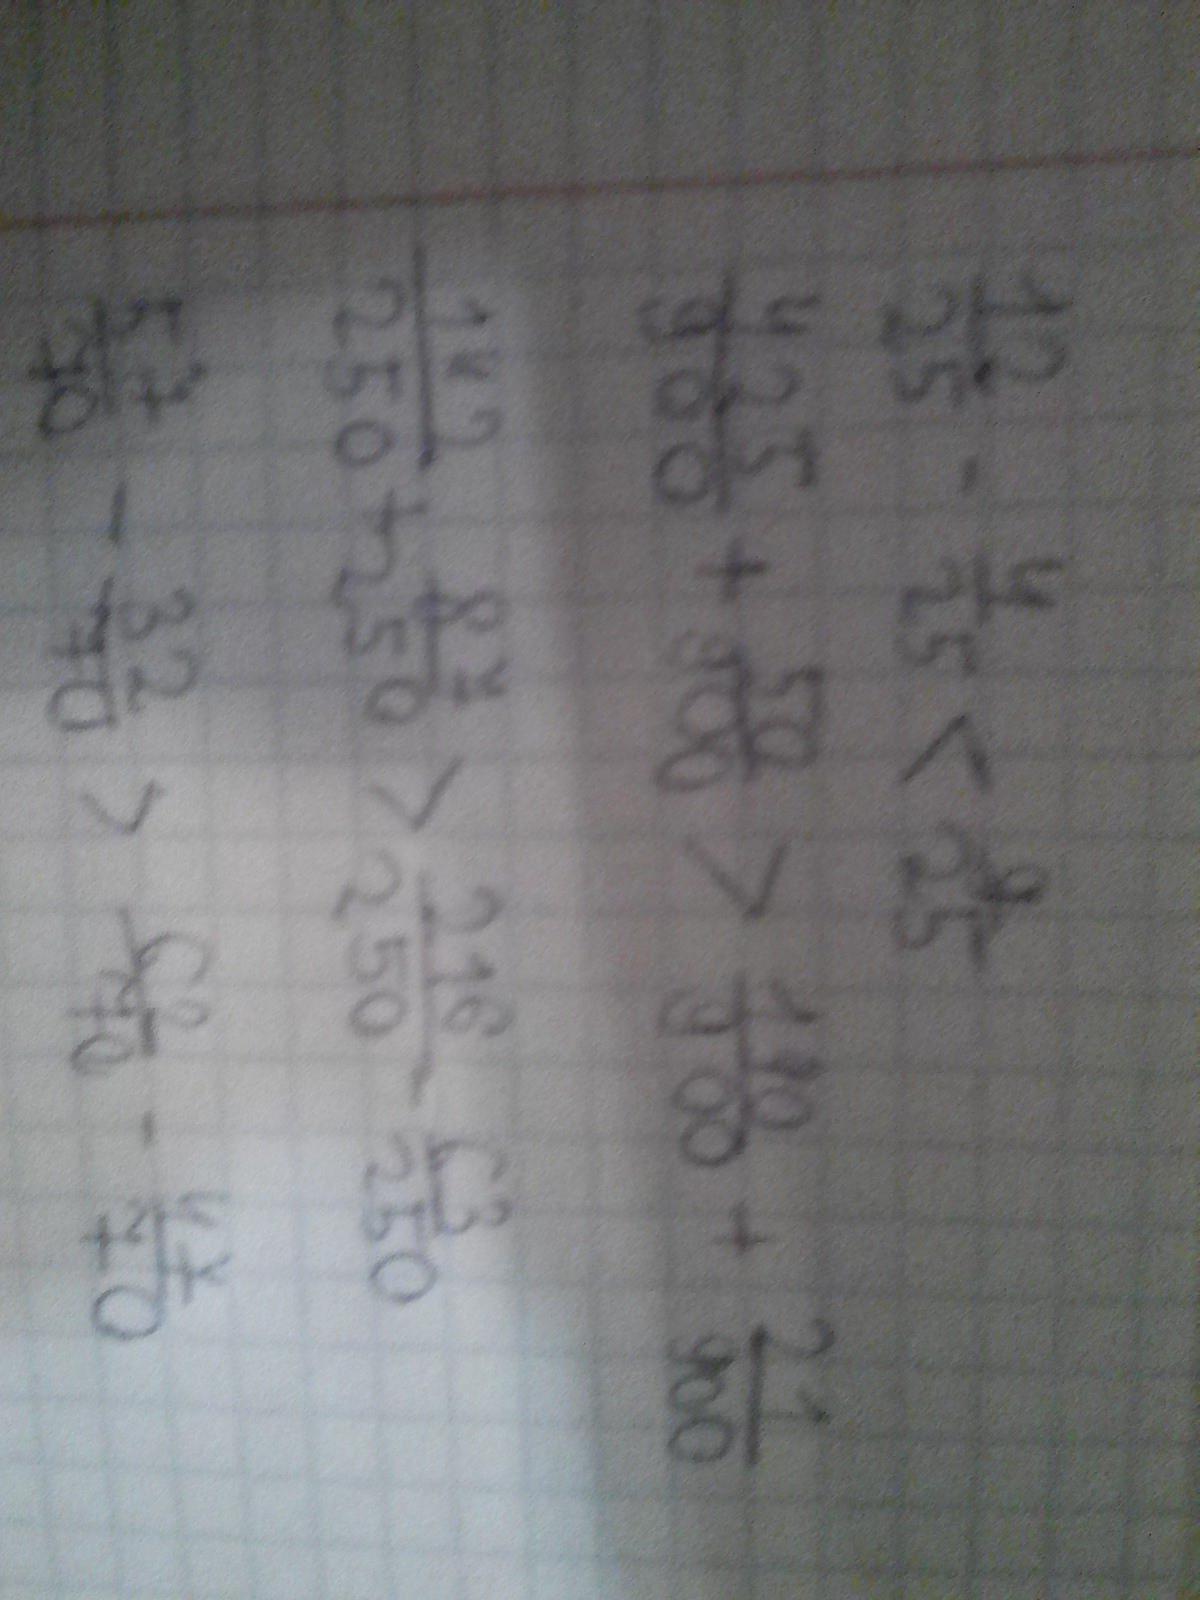 12/25 - 4/25 < 9/25
425/900 + 50/900 > 190/900 + 21/900
142/250 + 84/250 > 216/250 - 63/250
57/70 - 32/70 > 68/70 - 47/70